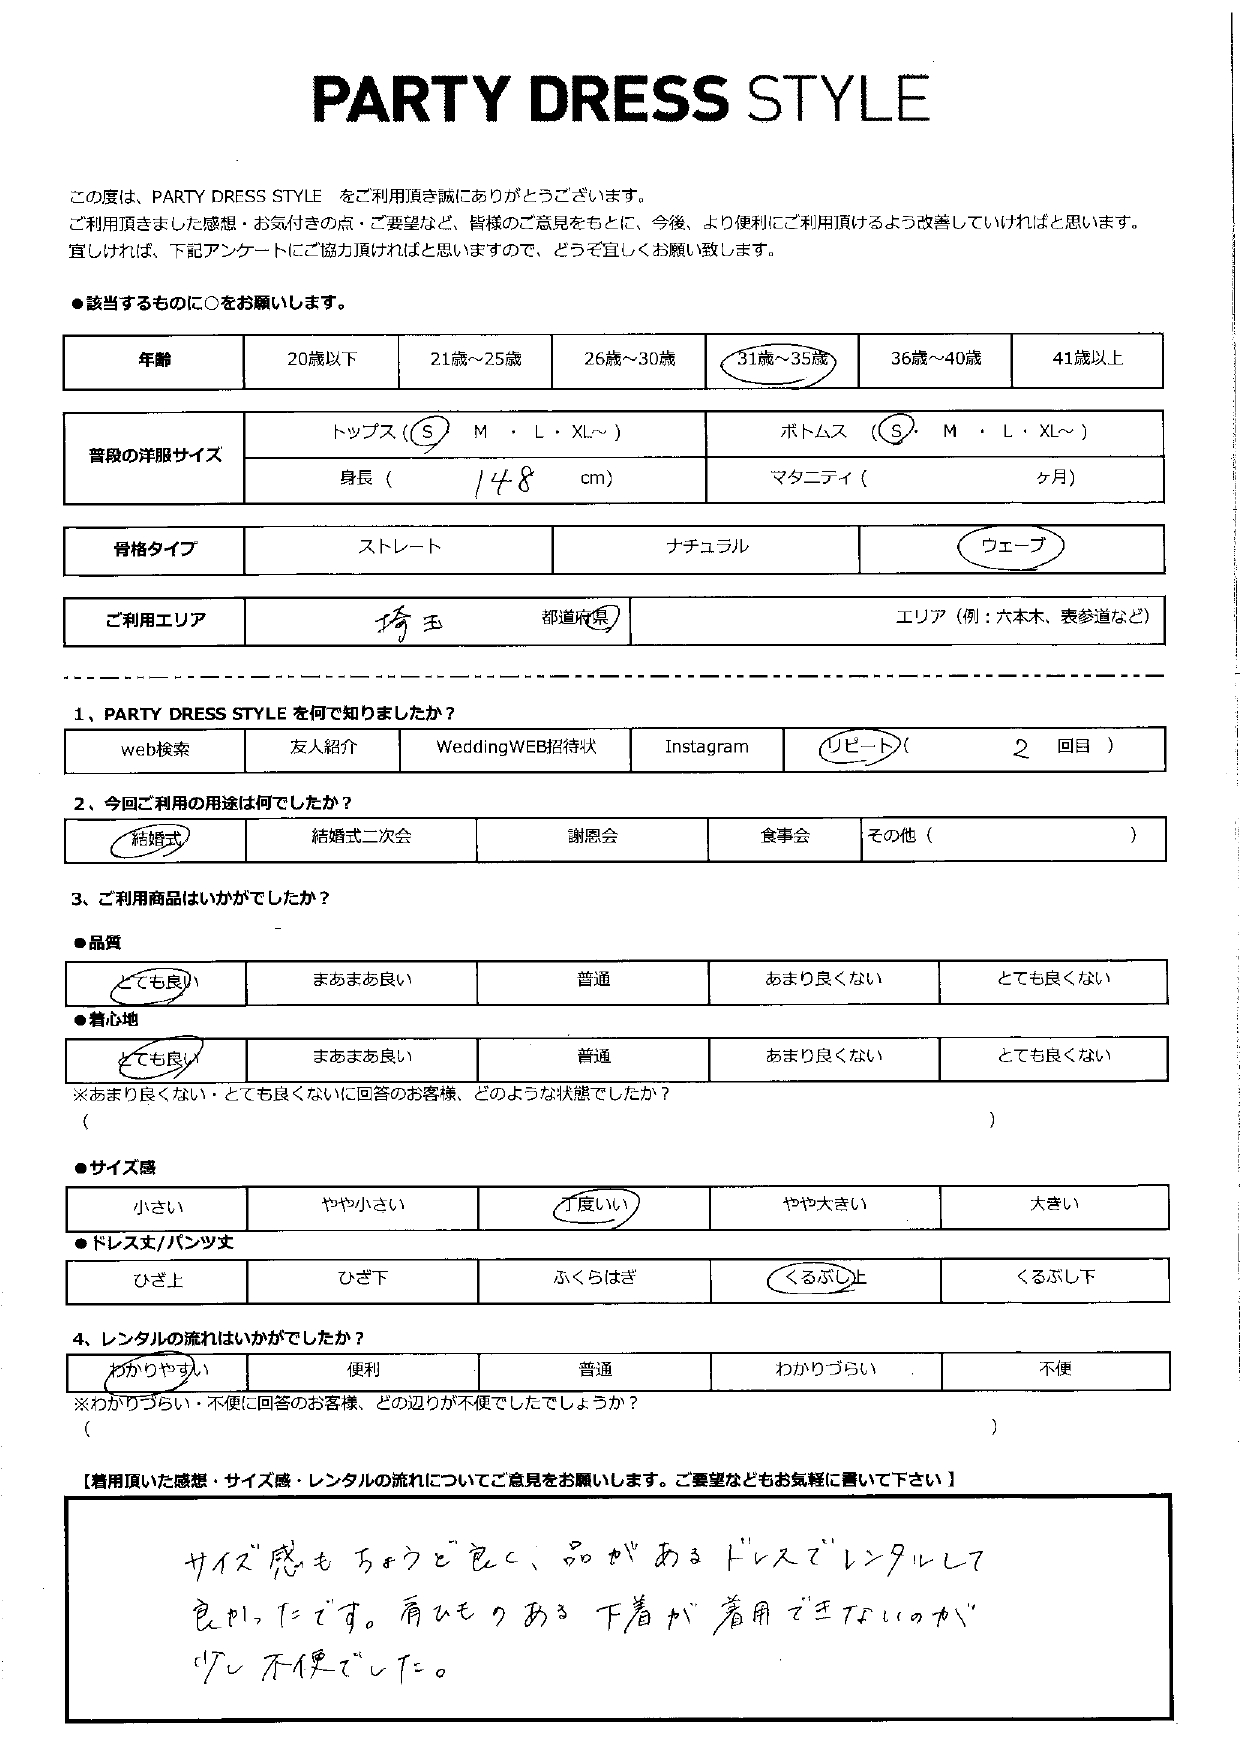 PARTY DRESS STYLE
この度は、PARTY DRESS STYLE をご利用頂き誠にありがとうございます。
ご利用頂きました感想・お気付きの点・ご要望など、皆様のご意見をもとに、今後、より便利にご利用頂けるよう改善していければと思います。
宜しければ、下記アンケートにご協力頂ければと思いますので、どうぞ宜しくお願い致します。
●該当するものに○をお願いします。
年齢 20歳以下 21歳～25歳 26歳～30歳 31歳～35歳 36歳～40歳 41歳以上
普段の洋服サイズ トップス (S M ・ L ・ XL～ ) ボトムス (S・ M ・ L ・ XL～ )
身長 ( 148 cm) マタニティ ( ヶ月)
骨格タイプ ストレート ナチュラル ウェーブ
ご利用エリア 埼玉 都道府県 エリア (例：六本木、表参道など)
1、PARTY DRESS STYLE を何で知りましたか？
web検索 友人紹介 WeddingWEB招待状 Instagram リピート( 2 回目 )
2、今回ご利用の用途は何でしたか？
結婚式 結婚式二次会 謝恩会 食事会 その他 ( )
3、ご利用商品はいかがでしたか？
●品質
とても良い まあまあ良い 普通 あまり良くない とても良くない
●着心地
とても良い まあまあ良い 普通 あまり良くない とても良くない
※あまり良くない・とても良くないに回答のお客様、どのような状態でしたか？
( )
●サイズ感
小さい やや小さい 丁度いい やや大きい 大きい
●ドレス丈/パンツ丈
ひざ上 ひざ下 ふくらはぎ くるぶし上 くるぶし下
4、レンタルの流れはいかがでしたか？
わかりやすい 便利 普通 わかりづらい 不便
※わかりづらい・不便に回答のお客様、どの辺りが不便でしたでしょうか？
( )
【着用頂いた感想・サイズ感・レンタルの流れについてご意見をお願いします。ご要望などもお気軽に書いて下さい 】
サイズ感もちょうど良く、品があるドレスでレンタルして
良かったです。肩ひものある下着が着用できないのが
少し不便でした。